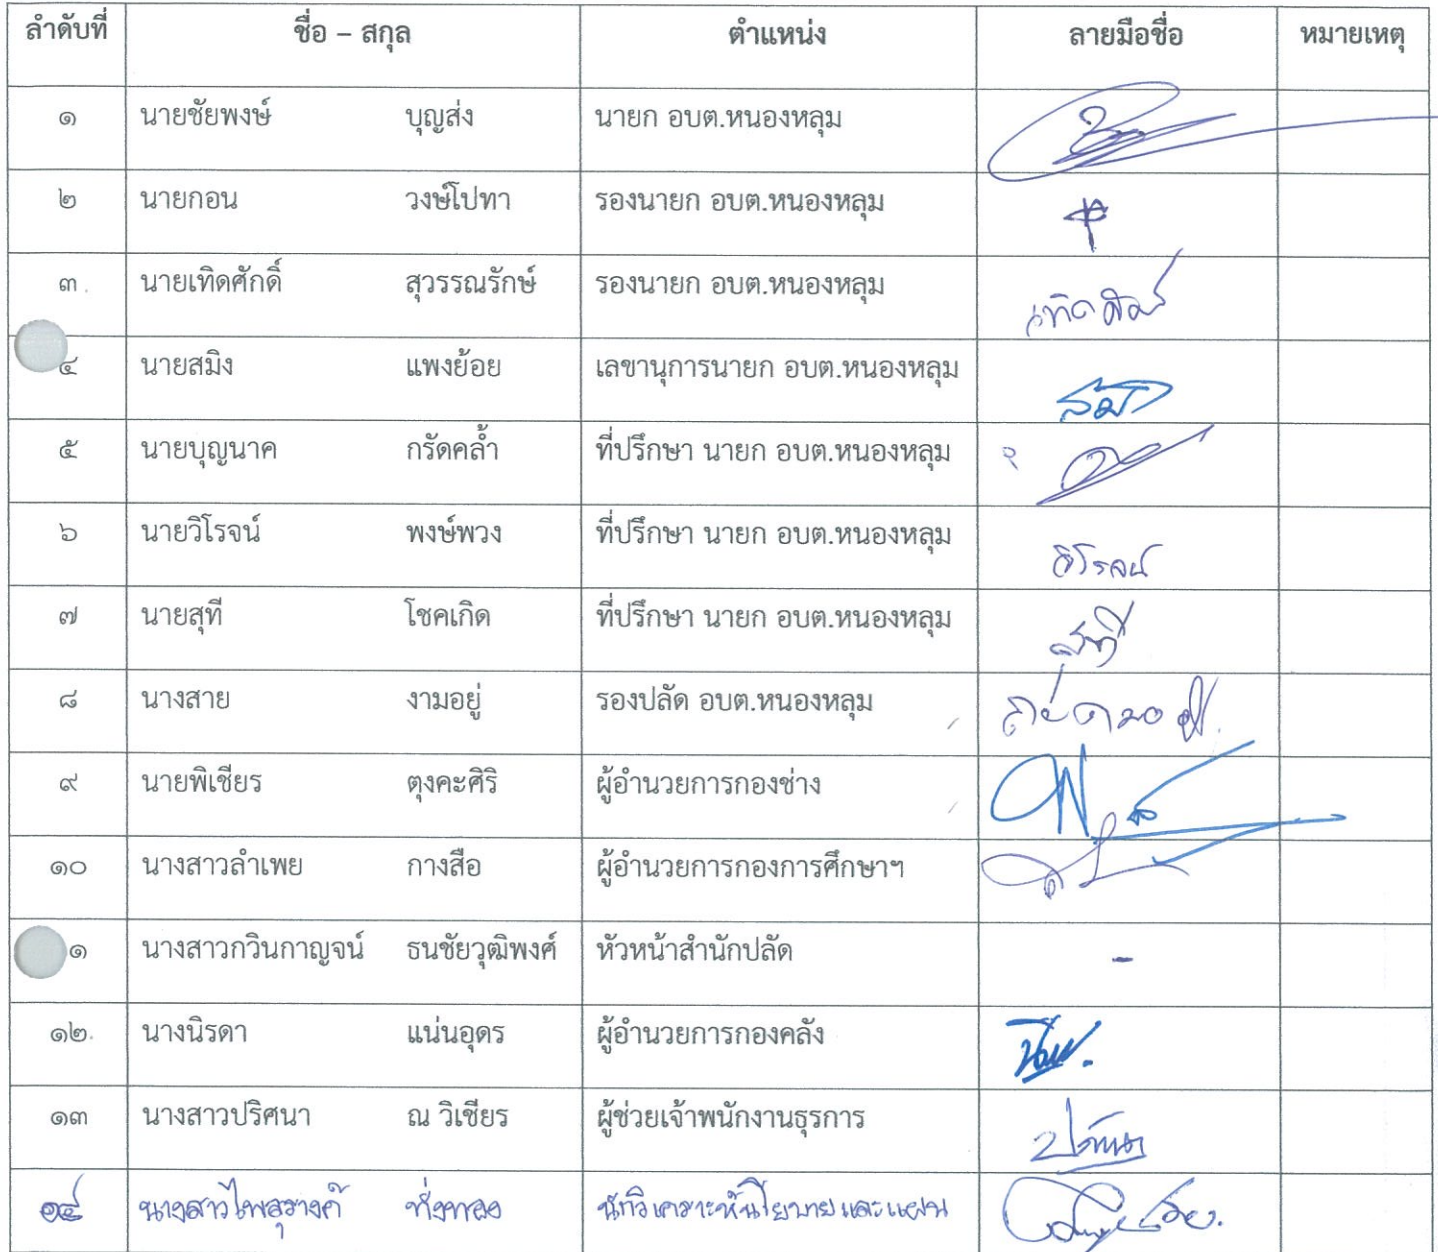 ลำดับที่ ชื่อ – สกุล ตำแหน่ง ลายมือชื่อ หมายเหตุ
๑ นายชัยพงษ์ บุญส่ง นายก อบต.หนองหลุม
๒ นายกอน วงษ์โปทา รองนายก อบต.หนองหลุม
๓. นายเทิดศักดิ์ สุวรรณรักษ์ รองนายก อบต.หนองหลุม เทิดศักดิ์
๔ นายสมิง แพงย้อย เลขานุการนายก อบต.หนองหลุม
๕ นายบุญนาค กรัดคล้ำ ที่ปรึกษา นายก อบต.หนองหลุม
๖ นายวิโรจน์ พงษ์พวง ที่ปรึกษา นายก อบต.หนองหลุม วิโรจน์
๗ นายสุที โชคเกิด ที่ปรึกษา นายก อบต.หนองหลุม สุที
๘ นางสาย งามอยู่ รองปลัด อบต.หนองหลุม
๙ นายพิเชียร ตุงคะศิริ ผู้อำนวยการกองช่าง
๑๐ นางสาวลำเพย กางสือ ผู้อำนวยการกองการศึกษาฯ
๑ นางสาวกวินกาญจน์ ธนชัยวุฒิพงศ์ หัวหน้าสำนักปลัด -
๑๒. นางนิรดา แน่นอุดร ผู้อำนวยการกองคลัง
๑๓ นางสาวปริศนา ณ วิเชียร ผู้ช่วยเจ้าพนักงานธุรการ
๑๔ นางสาวไพสุรางค์ ทั่งทอง นักวิเคราะห์นโยบายและแผน